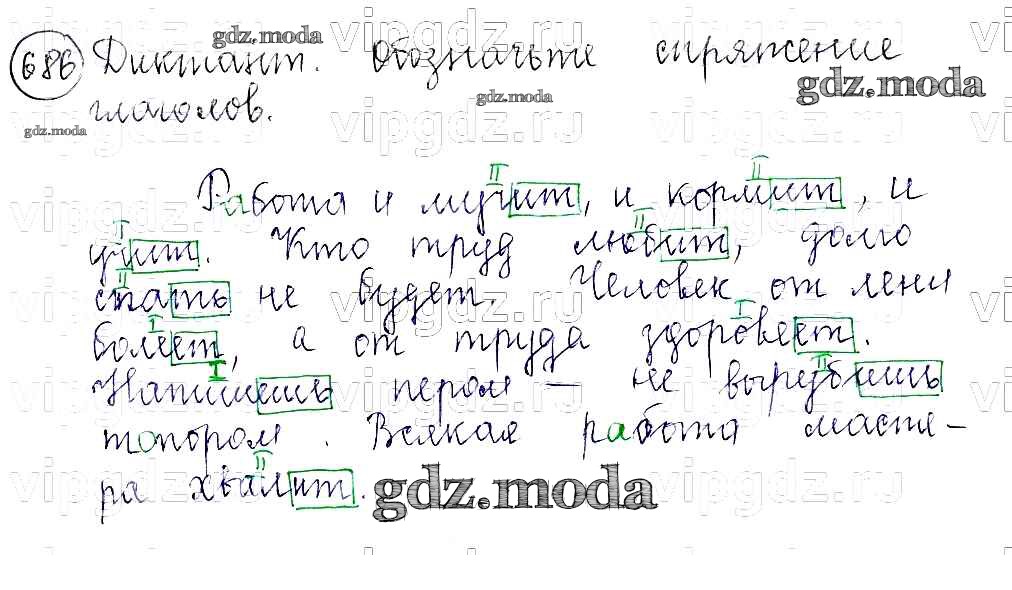 686 Диктант. Обозначьте спряжение
глаголов.
Работа и мучит, и кормит, и
учит. Кто труд любит, долго
спать не будет. Человек от лени
болеет, а от труда здоровеет.
Напишешь пером – не вырубишь
топором. Всякая работа масте-
ра хвалит.
gdz.moda
gdz.moda
gdz.moda
gdz.moda
gdz.moda
vipgdz.ru